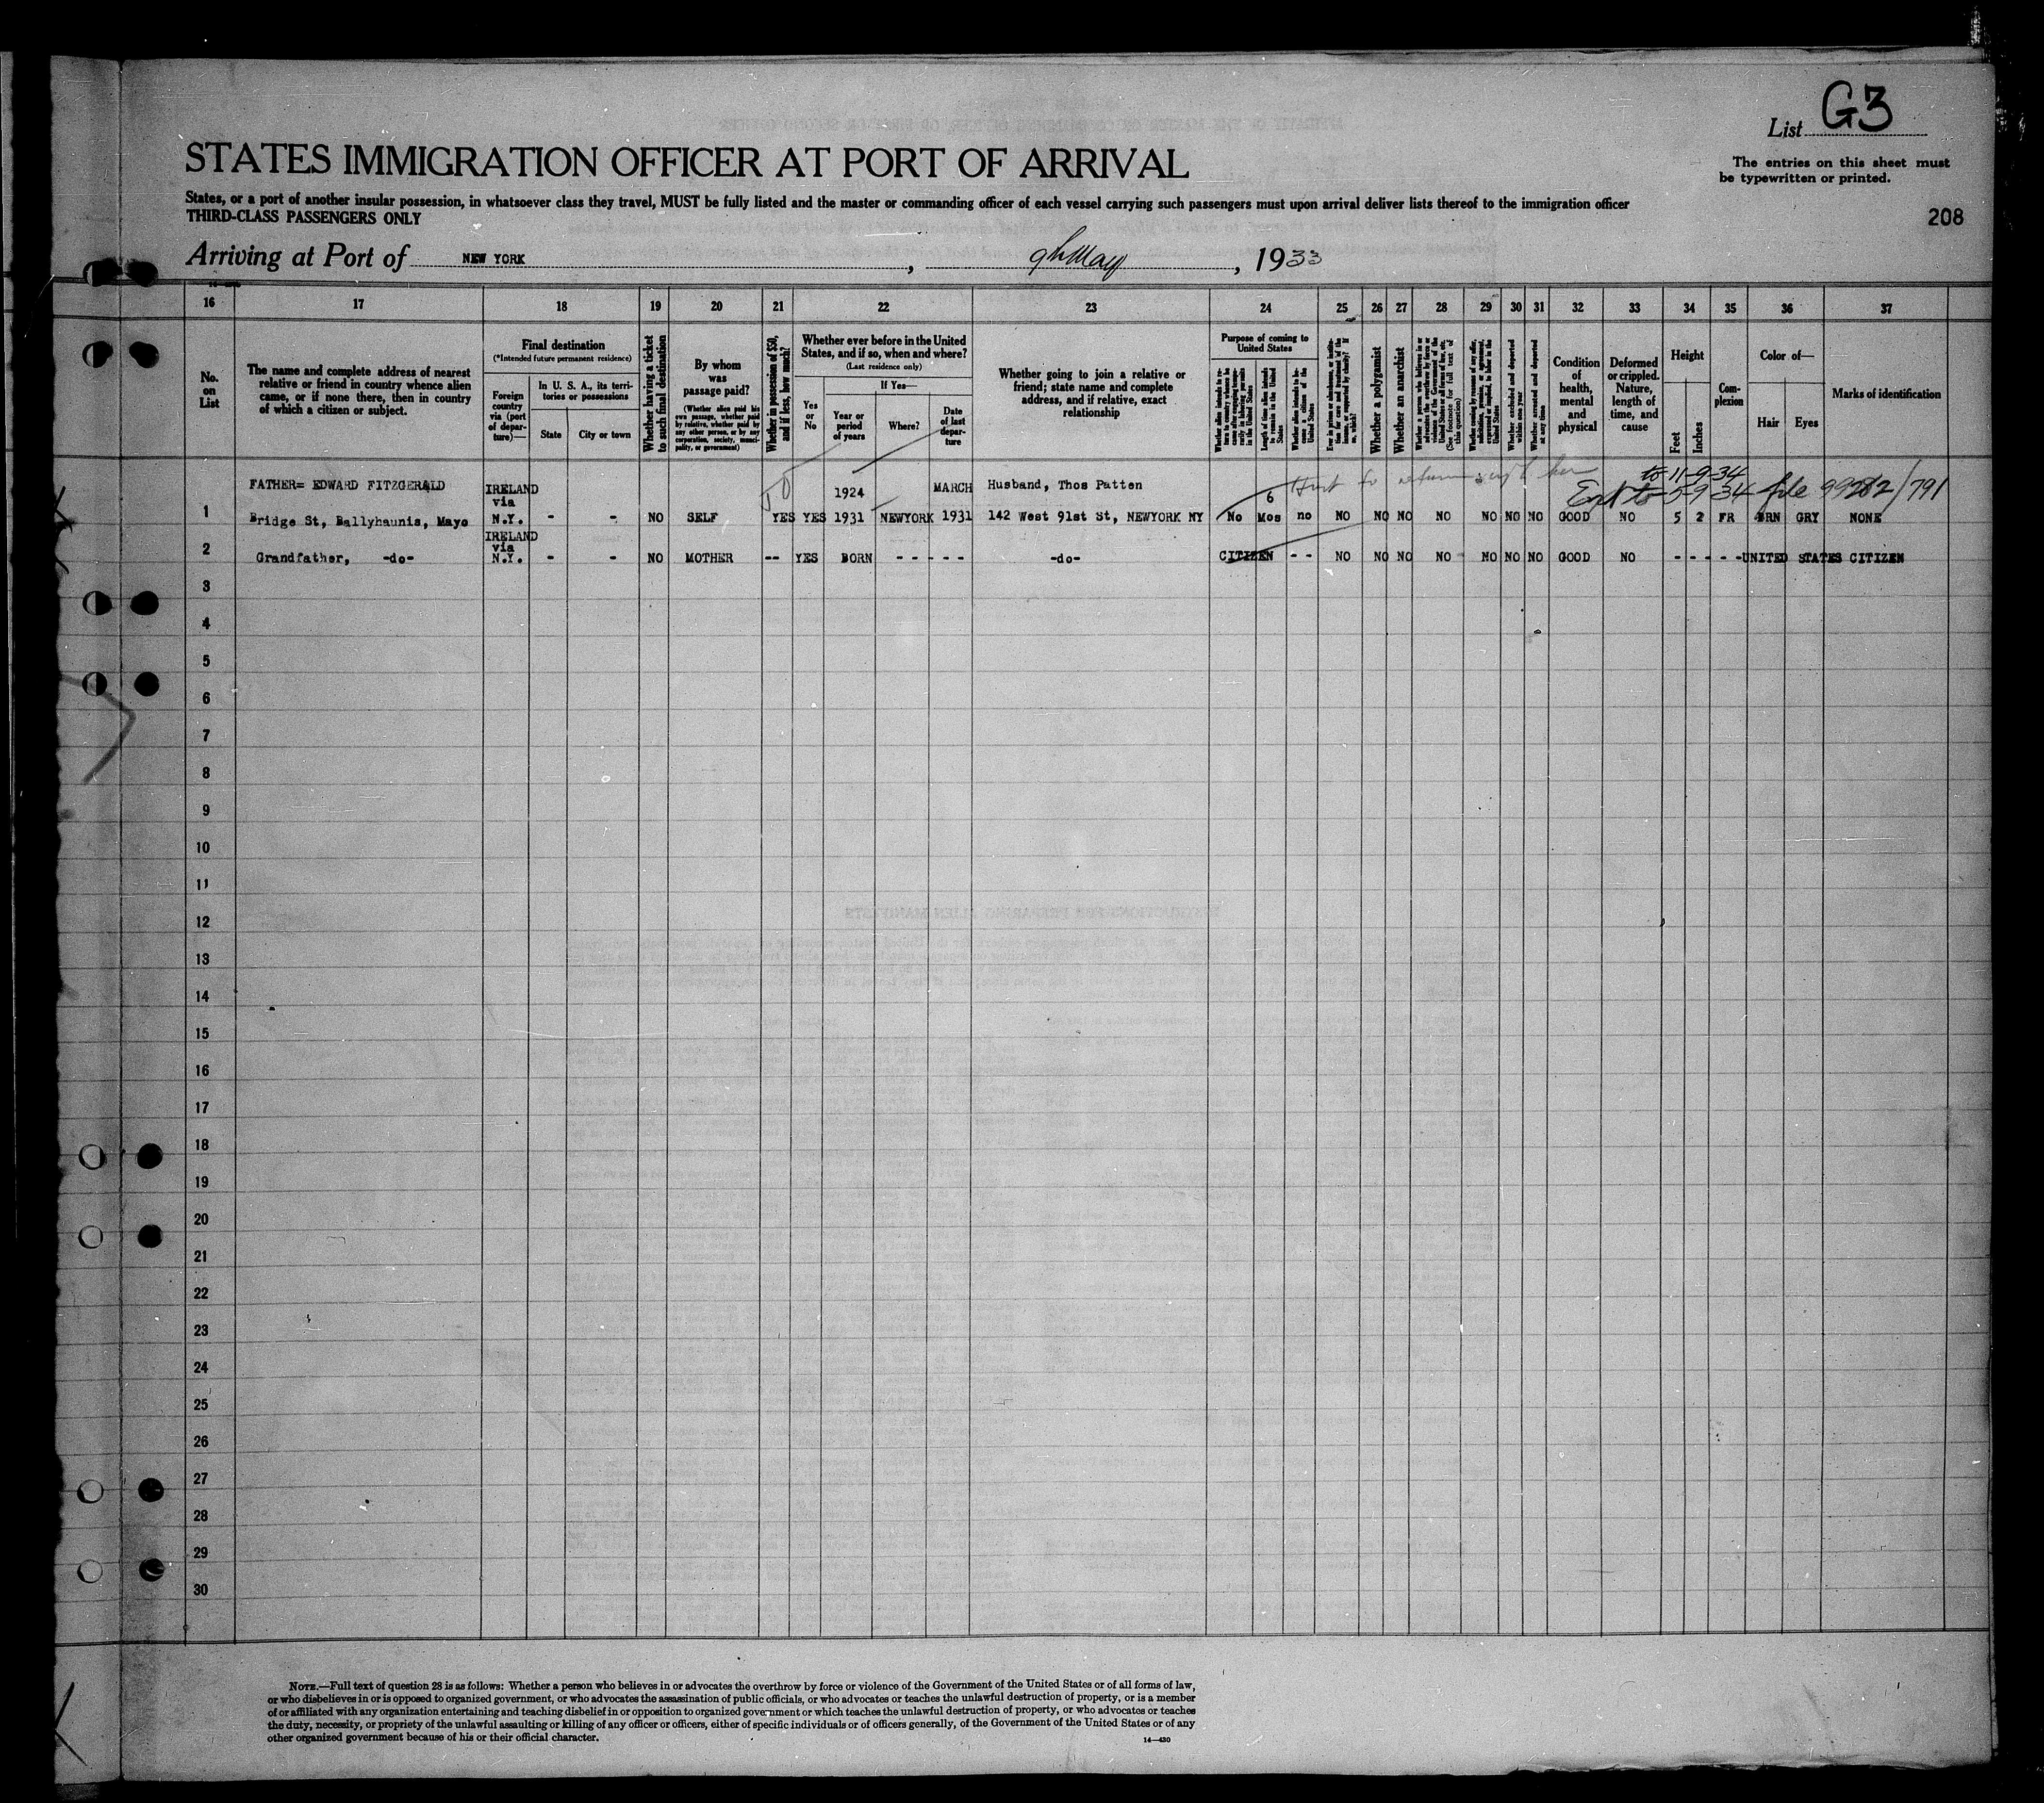 List G3
STATES IMMIGRATION OFFICER AT PORT OF ARRIVAL
The entries on this sheet must
be typewritten or printed.
States, or a port of another insular possession, in whatsoever class they travel, MUST be fully listed and the master or commanding officer of each vessel carrying such passengers must upon arrival deliver lists thereof to the immigration officer
THIRD-CLASS PASSENGERS ONLY
208
Arriving at Port of NEW YORK, 9th May, 1933
16 17 18 19 20 21 22 23 24 25 26 27 28 29 30 31 32 33 34 35 36 37
No.
on
List
The name and complete address of nearest
relative or friend in country whence alien
came, or if none there, then in country
of which a citizen or subject.
Final destination
(*Intended future permanent residence)
Foreign
country
via (port
of depar-
ture)—
In U. S. A., its terri-
tories or possessions
State
City or town
Whether having a ticket
to such final destination
By whom
was
passage paid?
(Whether alien paid his
own passage, whether paid
by relative, whether paid by
any other person, or by any
corporation, society, munici-
pality, or government)
Whether in possession of $50,
and if less, how much?
Whether ever before in the United
States, and if so, when and where?
(Last residence only)
Yes
or
No
If Yes—
Year or
period
of years
Where?
Date
of last
depar-
ture
Whether going to join a relative or
friend; state name and complete
address, and if relative, exact
relationship
Purpose of coming to
United States
Length of time alien intends
to remain in the United
States
Whether alien intends to be-
come a citizen of the
United States
Whether a polygamist
Whether an anarchist
Whether excluded and deported
within one year
Whether arrested and deported
at any time
Condition
of
health,
mental
and
physical
Deformed
or crippled.
Nature,
length of
time, and
cause
Height
Feet
Inches
Com-
plexion
Color of—
Hair
Eyes
Marks of identification
to 11-9-34
Ext to 5-9-34 file 99282/791
FATHER= EDWARD FITZGERALD IRELAND via 1924 MARCH Husband, Thos Patten 6
1 Bridge St, Ballyhaunis, Mayo N.Y. - - NO SELF YES YES 1931 NEWYORK 1931 142 West 91st St, NEWYORK NY No Mos no NO NO NO NO NO NO NO GOOD NO 5 2 FR BRN GRY NONE
IRELAND via
2 Grandfather, -do- N.Y. - - NO MOTHER -- YES BORN - - - - - -do- CITIZEN - - NO NO NO NO NO NO NO GOOD NO - - - - -UNITED STATES CITIZEN
3
4
5
6
7
8
9
10
11
12
13
14
15
16
17
18
19
20
21
22
23
24
25
26
27
28
29
30
NOTE.—Full text of question 28 is as follows: Whether a person who believes in or advocates the overthrow by force or violence of the Government of the United States or of all forms of law,
or who disbelieves in or is opposed to organized government, or who advocates the assassination of public officials, or who advocates or teaches the unlawful destruction of property, or is a member
of or affiliated with any organization entertaining and teaching disbelief in or opposition to organized government or which teaches the unlawful destruction of property, or who advocates or teaches
the duty, necessity, or propriety of the unlawful assaulting or killing of any officer or officers, either of specific individuals or of officers generally, of the Government of the United States or of any
other organized government because of his or their official character.
14—430